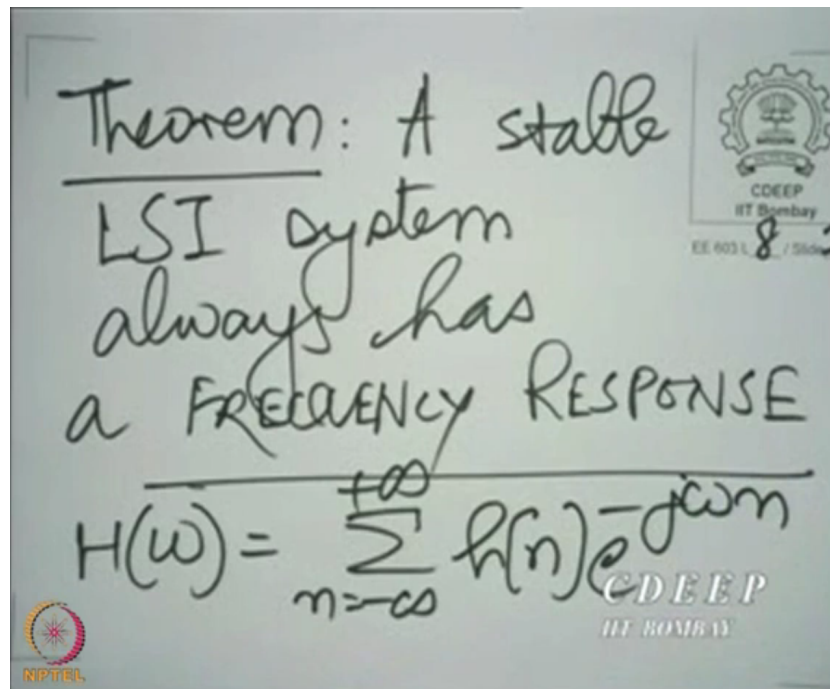 Theorem: A stable
LSI system
always has
a FREQUENCY RESPONSE
+∞
H(ω) = Σ h[n] e^-jωn
n=-∞
CDEEP
IIT Bombay
EE 603 L 8 / Slide
CDEEP
IIT BOMBAY
NPTEL